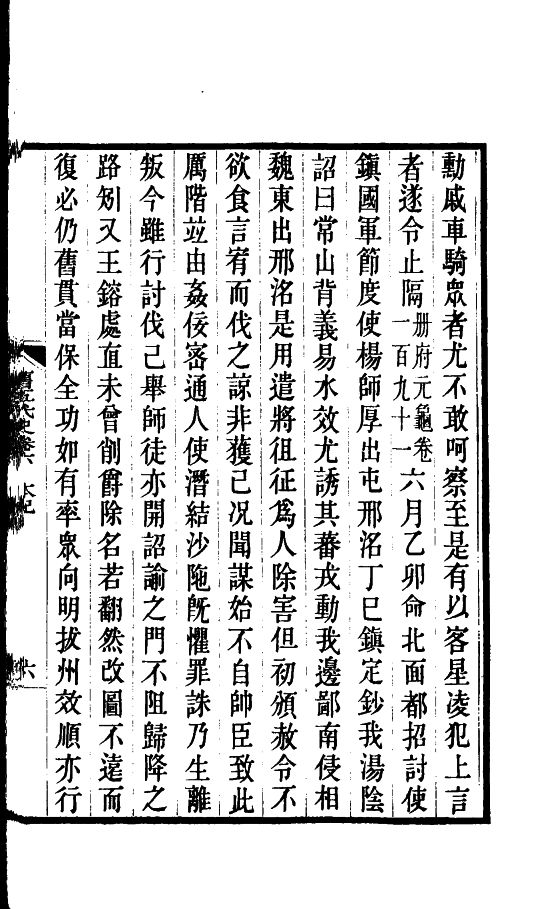 勳戚車騎眾者尤不敢呵察至是有以客星凌犯上言
者遂令止隔册府元龜卷一百九十一六月乙卯命北面都招討使
鎮國軍節度使楊師厚出屯邢洺丁巳鎮定鈔我湯陰
詔曰常山背義易水效尤誘其蕃戎動我邊鄙南侵相
魏東出邢洺是用遣將徂征爲人除害但初頒赦令不
欲食言宥而伐之諒非獲已况聞謀始不自帥臣致此
厲階竝由姦佞密通人使潛結沙陁旣懼罪誅乃生離
叛今雖行討伐已舉師徒亦開詔諭之門不阻歸降之
路矧又王鎔處直未曾削爵除名若翻然改圖不遠而
復必仍舊貫當保全功如有率眾向明拔州效順亦行
六